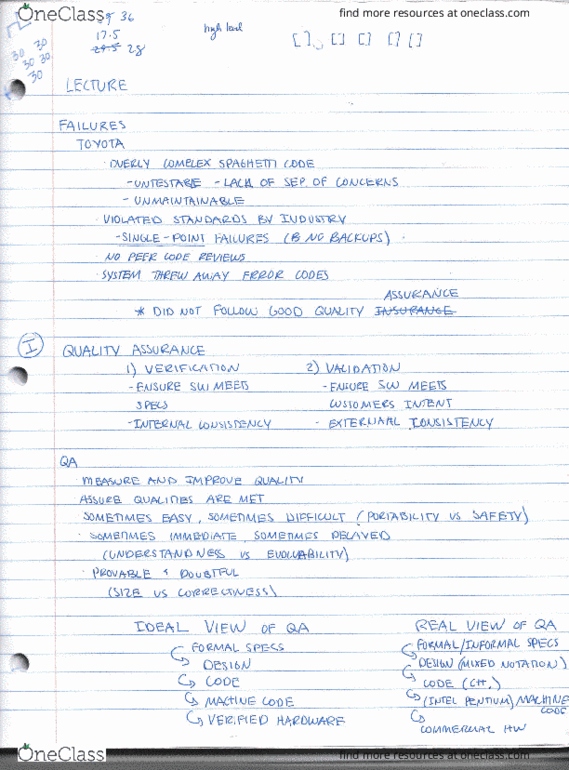 OneClass
find more resources at oneclass.com
36
high level
17.5
29.5 28
30 30
30 30
30
[ ] [ ] [ ] [ ] [ ]
LECTURE
FAILURES
TOYOTA
· OVERLY COMPLEX SPAGHETTI CODE
- UNTESTABLE - LACK OF SEP OF CONCERNS
- UNMAINTAINABLE
· VIOLATED STANDARDS BY INDUSTRY
- SINGLE-POINT FAILURES (& NO BACKUPS)
· NO PEER CODE REVIEWS
· SYSTEM THREW AWAY ERROR CODES
ASSURANCE
* DID NOT FOLLOW GOOD QUALITY INSURANCE
I
QUALITY ASSURANCE
1) VERIFICATION 2) VALIDATION
- ENSURE SW MEETS - ENSURE SW MEETS
SPECS CUSTOMERS INTENT
- INTERNAL CONSISTENCY - EXTERNAL CONSISTENCY
QA
· MEASURE AND IMPROVE QUALITY
ASSURE QUALITIES ARE MET
SOMETIMES EASY, SOMETIMES DIFFICULT (PORTABILITY VS SAFETY)
· SOMETIMES IMMEDIATE, SOMETIMES DELAYED
(UNDERSTANDNESS VS EVOLVABILITY)
· PROVABLE & DOUBTFUL
(SIZE VS CORRECTNESS)
IDEAL VIEW OF QA REAL VIEW OF QA
FORMAL SPECS FORMAL/INFORMAL SPECS
DESIGN DESIGN (MIXED NOTATION)
CODE CODE (C++,)
MACHINE CODE (INTEL PENTIUM) MACHINE CODE
VERIFIED HARDWARE COMMERCIAL HW
OneClass
find more resources at oneclass.com